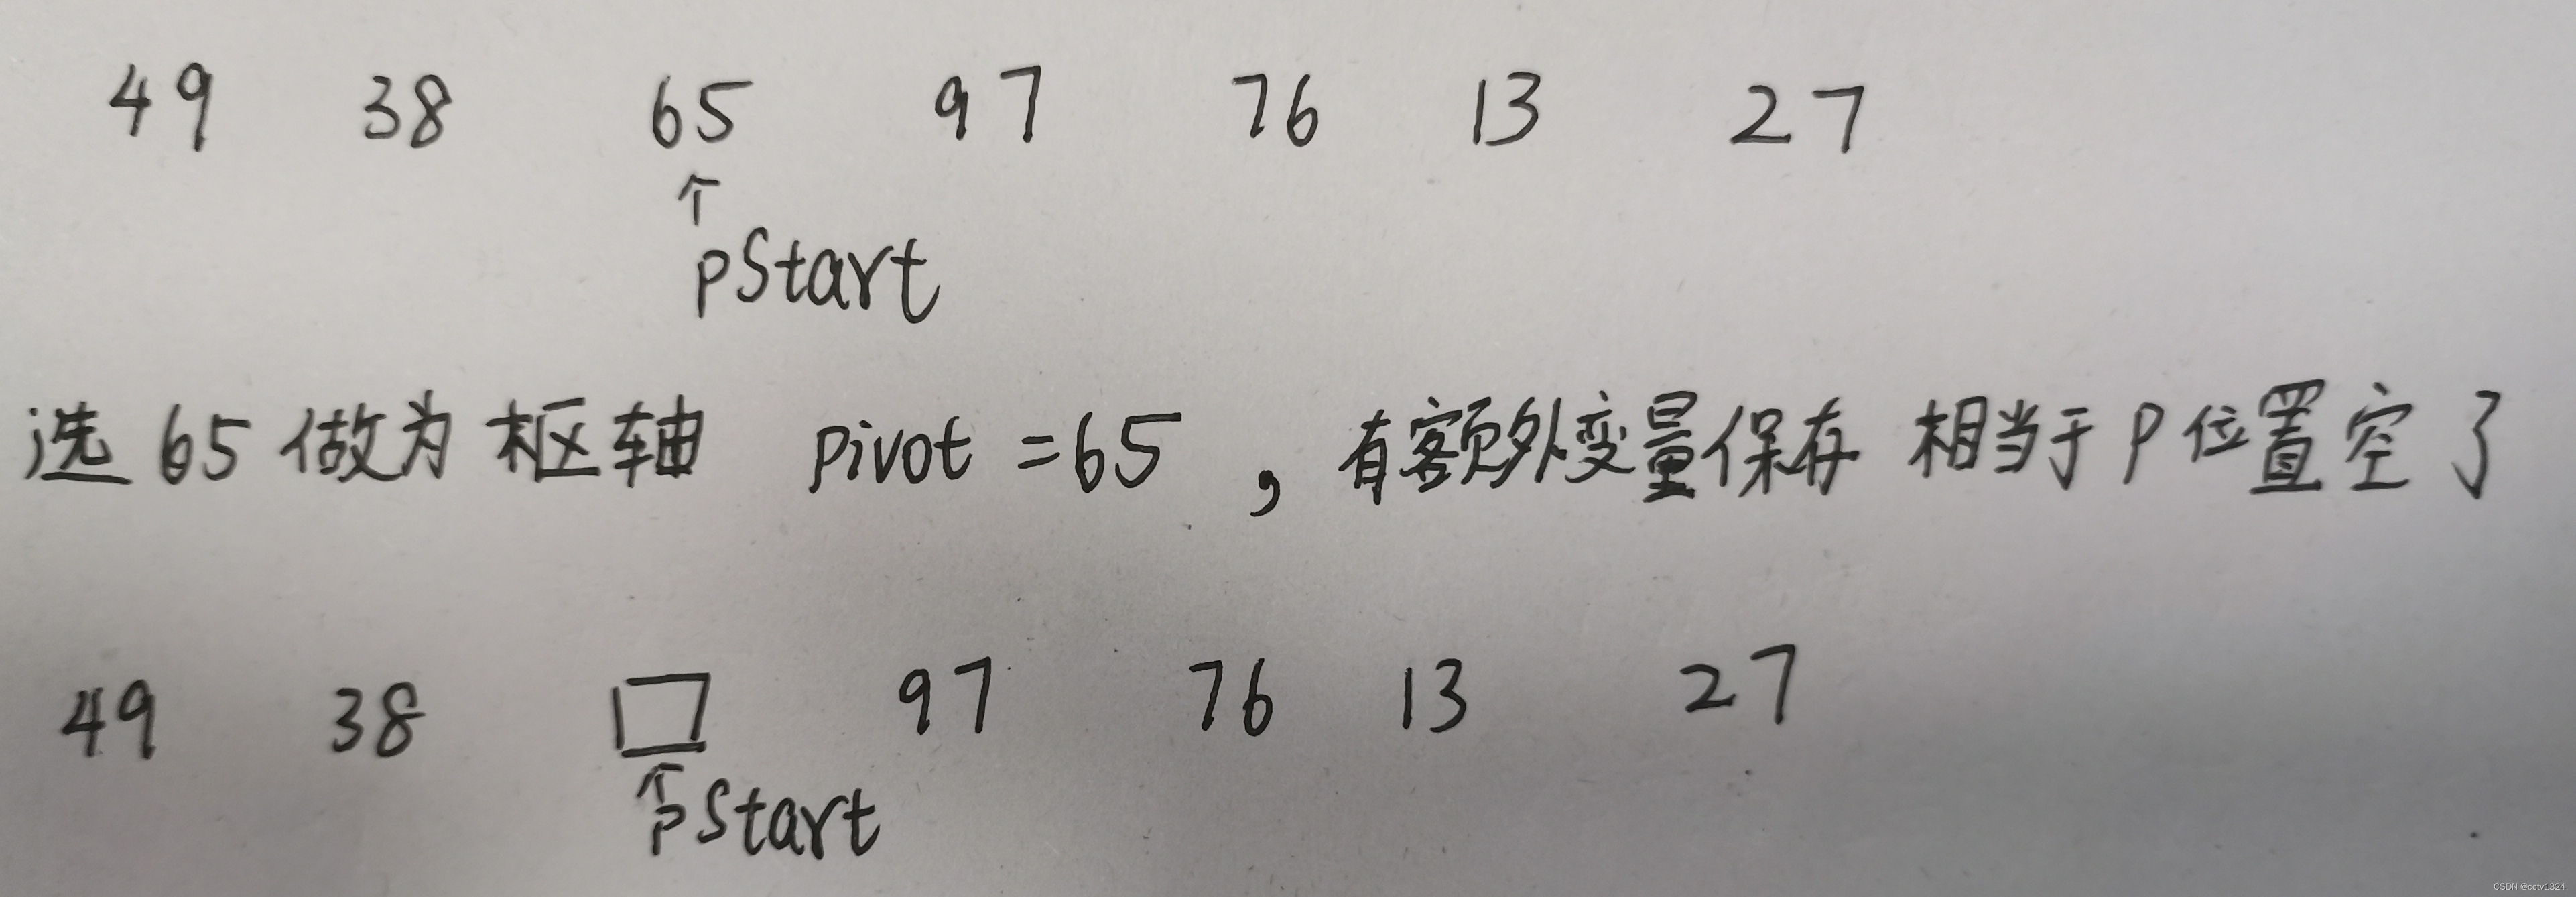 49 38 65 97 76 13 27
↑
pStart
选65做为枢轴 pivot =65 , 有客额外变量保存 相当于P位置空了
49 38 □ 97 76 13 27
↑
pStart
CSDN @cctv1324